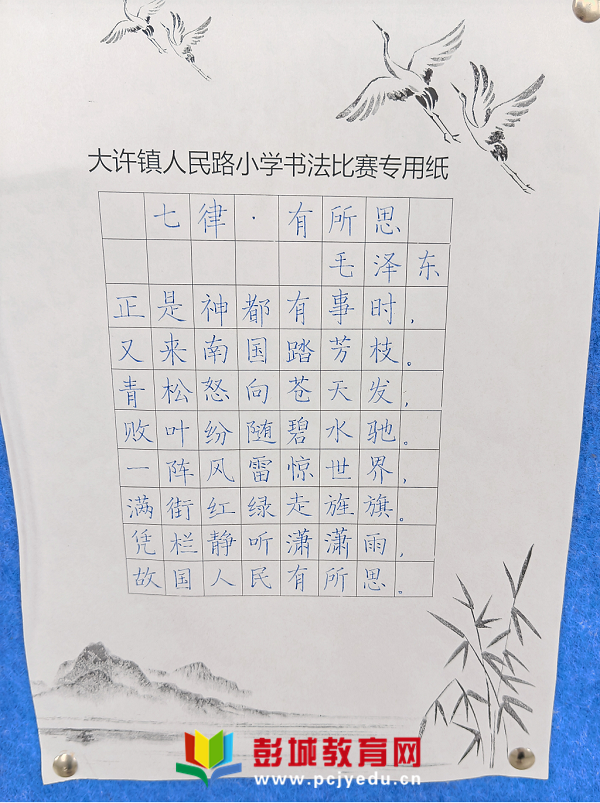 大许镇人民路小学书法比赛专用纸
七律·有所思
毛泽东
正是神都有事时，
又来南国踏芳枝。
青松怒向苍天发，
败叶纷随碧水驰。
一阵风雷惊世界，
满街红绿走旌旗。
凭栏静听潇潇雨，
故国人民有所思。
彭城教育网
www.pcjyedu.cn